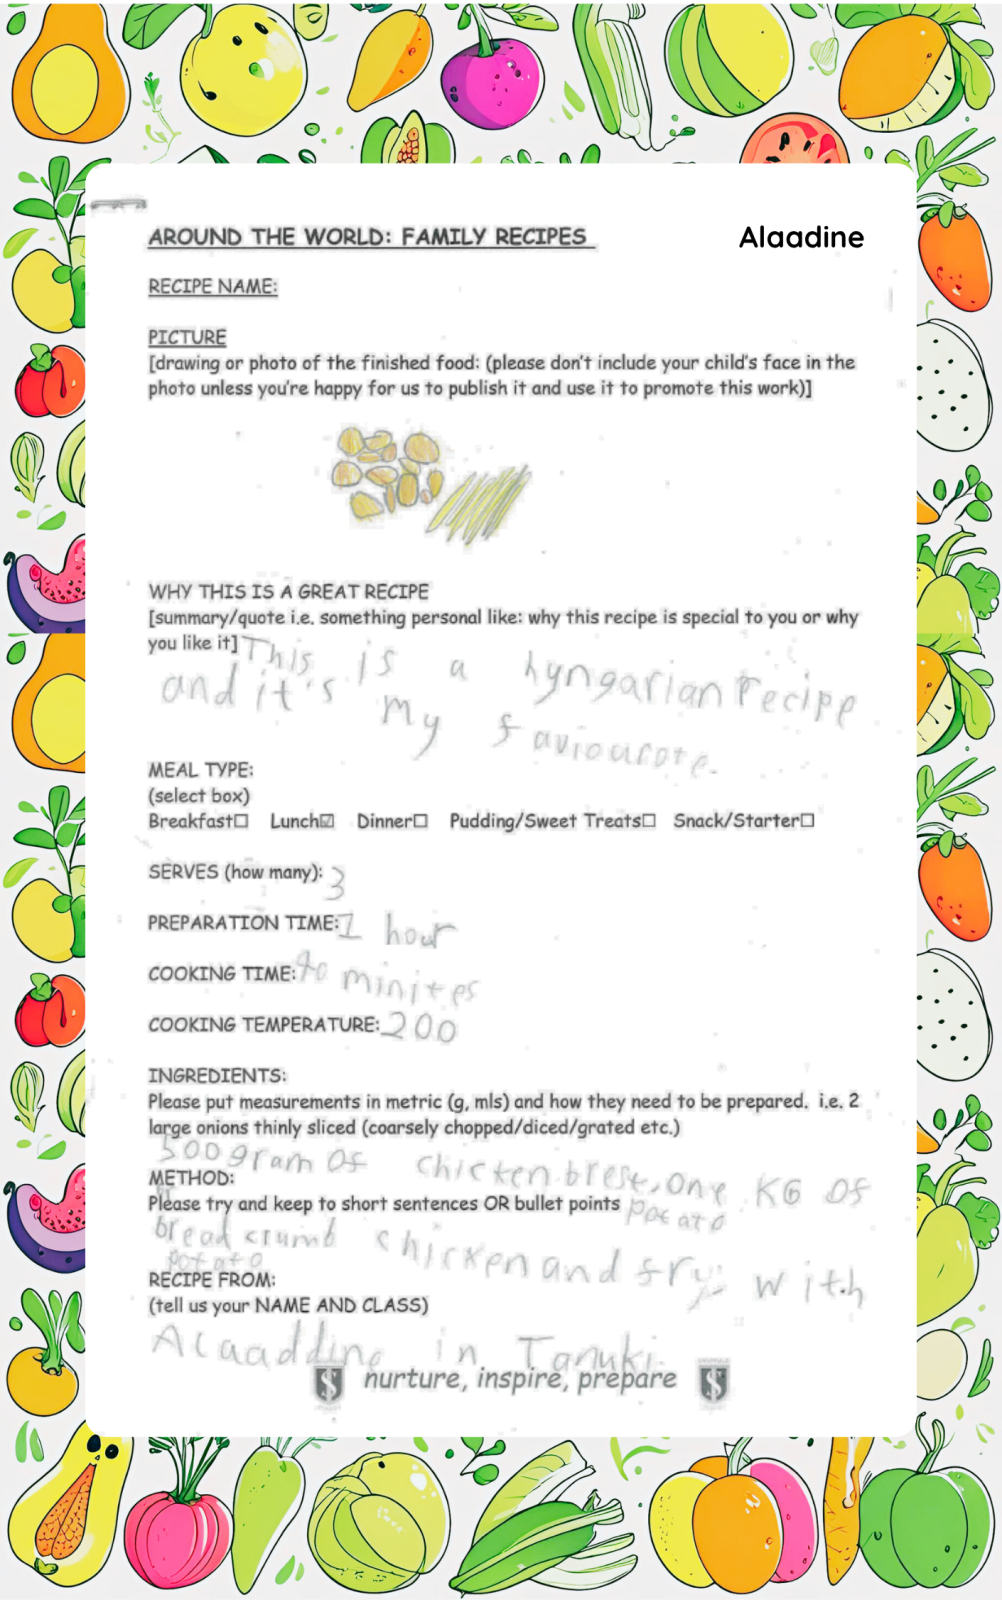 AROUND THE WORLD: FAMILY RECIPES
Alaadine
RECIPE NAME:
PICTURE
[drawing or photo of the finished food: (please don't include your child's face in the
photo unless you're happy for us to publish it and use it to promote this work)]
WHY THIS IS A GREAT RECIPE
[summary/quote i.e. something personal like: why this recipe is special to you or why
you like it] This is a hyngarian recipe
and it's my
MEAL TYPE:
(select box)
Breakfast☐ Lunch☑ Dinner☐ Pudding/Sweet Treats☐ Snack/Starter☐
SERVES (how many): 3
PREPARATION TIME: 1 hour
COOKING TIME: 40 minites
COOKING TEMPERATURE: 200
INGREDIENTS:
Please put measurements in metric (g, mls) and how they need to be prepared. i.e. 2
large onions thinly sliced (coarsely chopped/diced/grated etc.)
500 gram of chicken brest, one KG of
METHOD:
Please try and keep to short sentences OR bullet points potato
bread crumb chicken and fry with
potato
RECIPE FROM:
(tell us your NAME AND CLASS)
in Tanuki
nurture, inspire, prepare